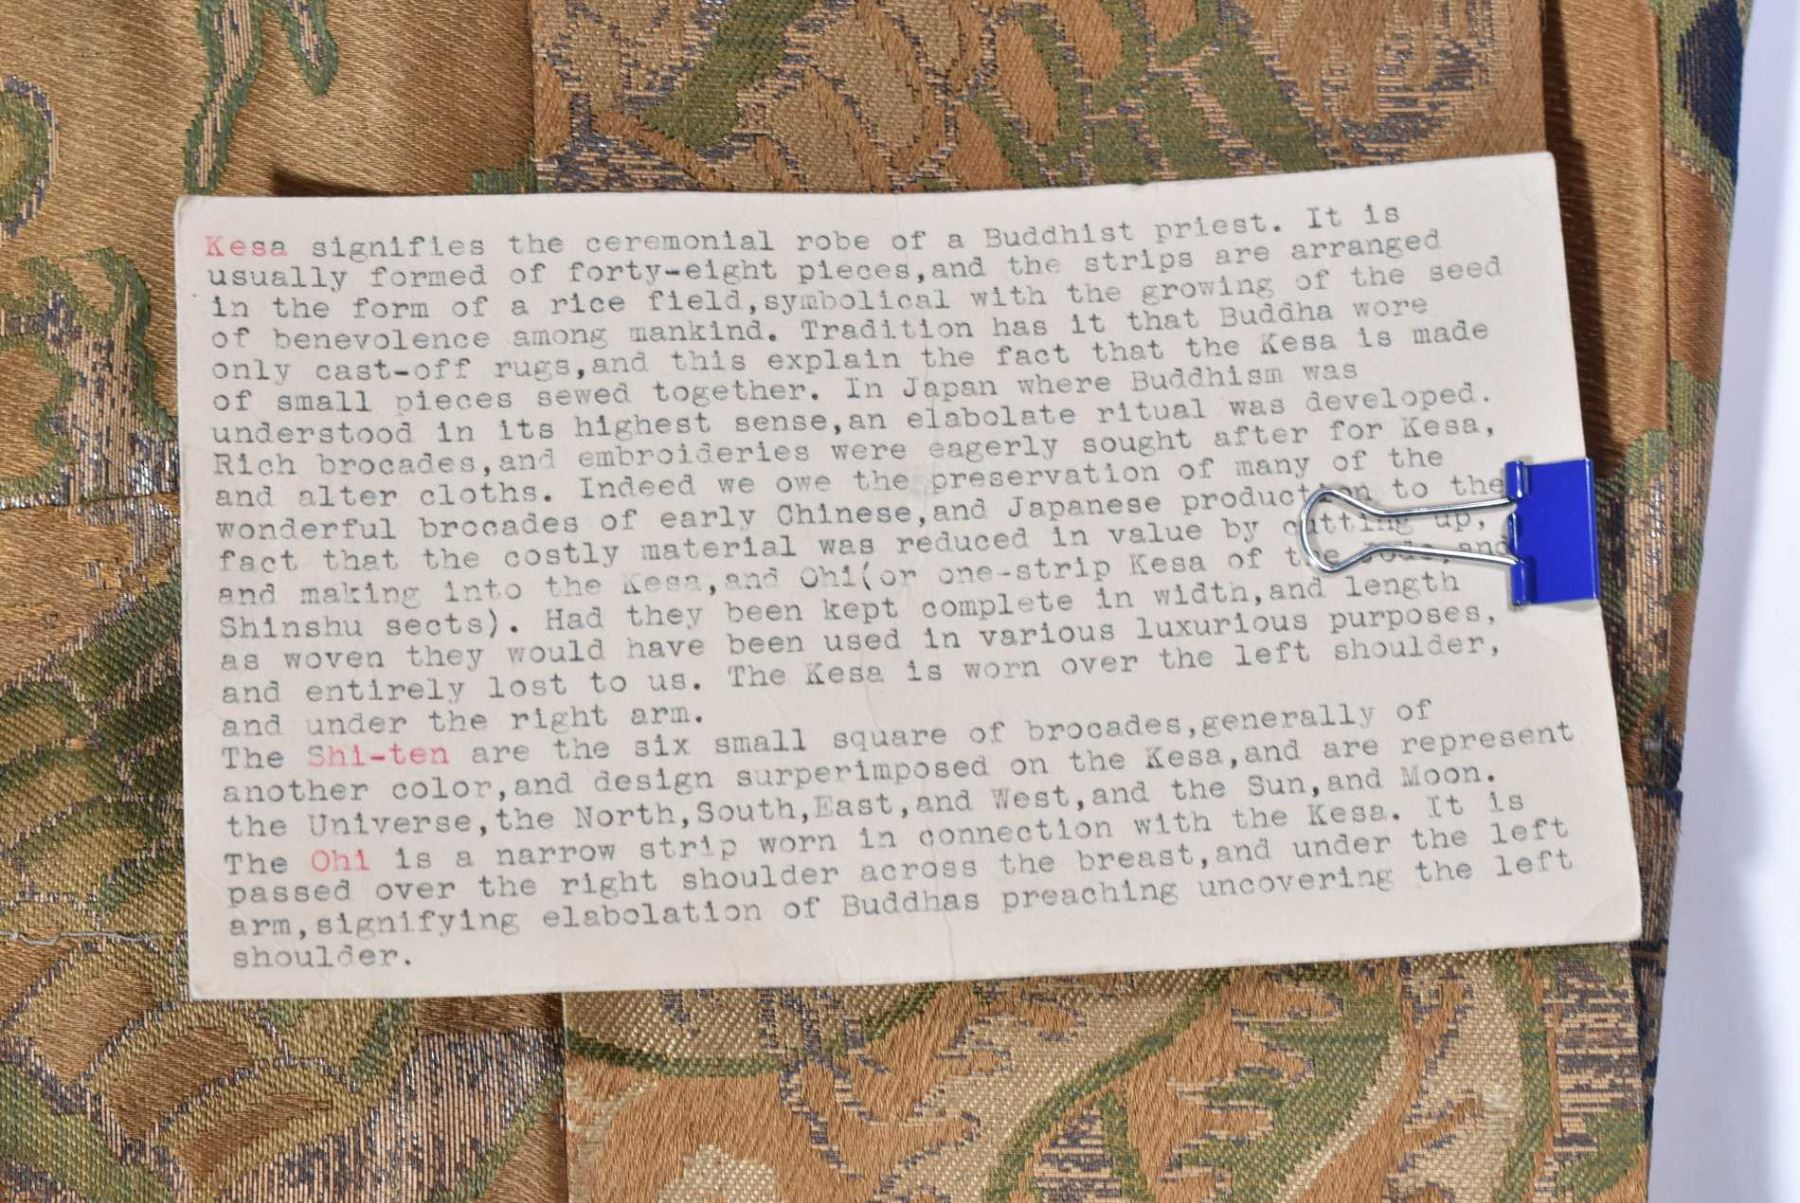 Kesa signifies the ceremonial robe of a Buddhist priest. It is
usually formed of forty-eight pieces,and the strips are arranged
in the form of a rice field,symbolical with the growing of the seed
of benevolence among mankind. Tradition has it that Buddha wore
only cast-off rugs,and this explain the fact that the Kesa is made
of small pieces sewed together. In Japan where Buddhism was
understood in its highest sense,an elabolate ritual was developed.
Rich brocades,and embroideries were eagerly sought after for Kesa,
and alter cloths. Indeed we owe the preservation of many of the
wonderful brocades of early Chinese,and Japanese production to the
fact that the costly material was reduced in value by cutting up,
and making into the Kesa,and Ohi(or one-strip Kesa of the and
Shinshu sects). Had they been kept complete in width,and length
as woven they would have been used in various luxurious purposes,
and entirely lost to us. The Kesa is worn over the left shoulder,
and under the right arm.
The Shi-ten are the six small square of brocades,generally of
another color,and design surperimposed on the Kesa,and are represent
the Universe,the North,South,East,and West,and the Sun,and Moon.
The Ohi is a narrow strip worn in connection with the Kesa. It is
passed over the right shoulder across the breast,and under the left
arm,signifying elabolation of Buddhas preaching uncovering the left
shoulder.